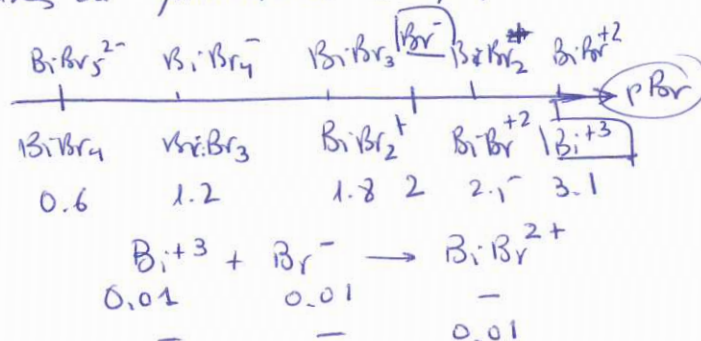 BiBr5²⁻ BiBr4⁻ BiBr3 Br⁻ BiBr2⁺ BiBr⁺²
pBr
BiBr4 BiBr3 BiBr2⁺ BiBr⁺² Bi⁺³
0.6 1.2 1.8 2 3.1
Bi⁺³ + Br⁻ → BiBr²⁺
0,01 0.01 –
– – 0.01